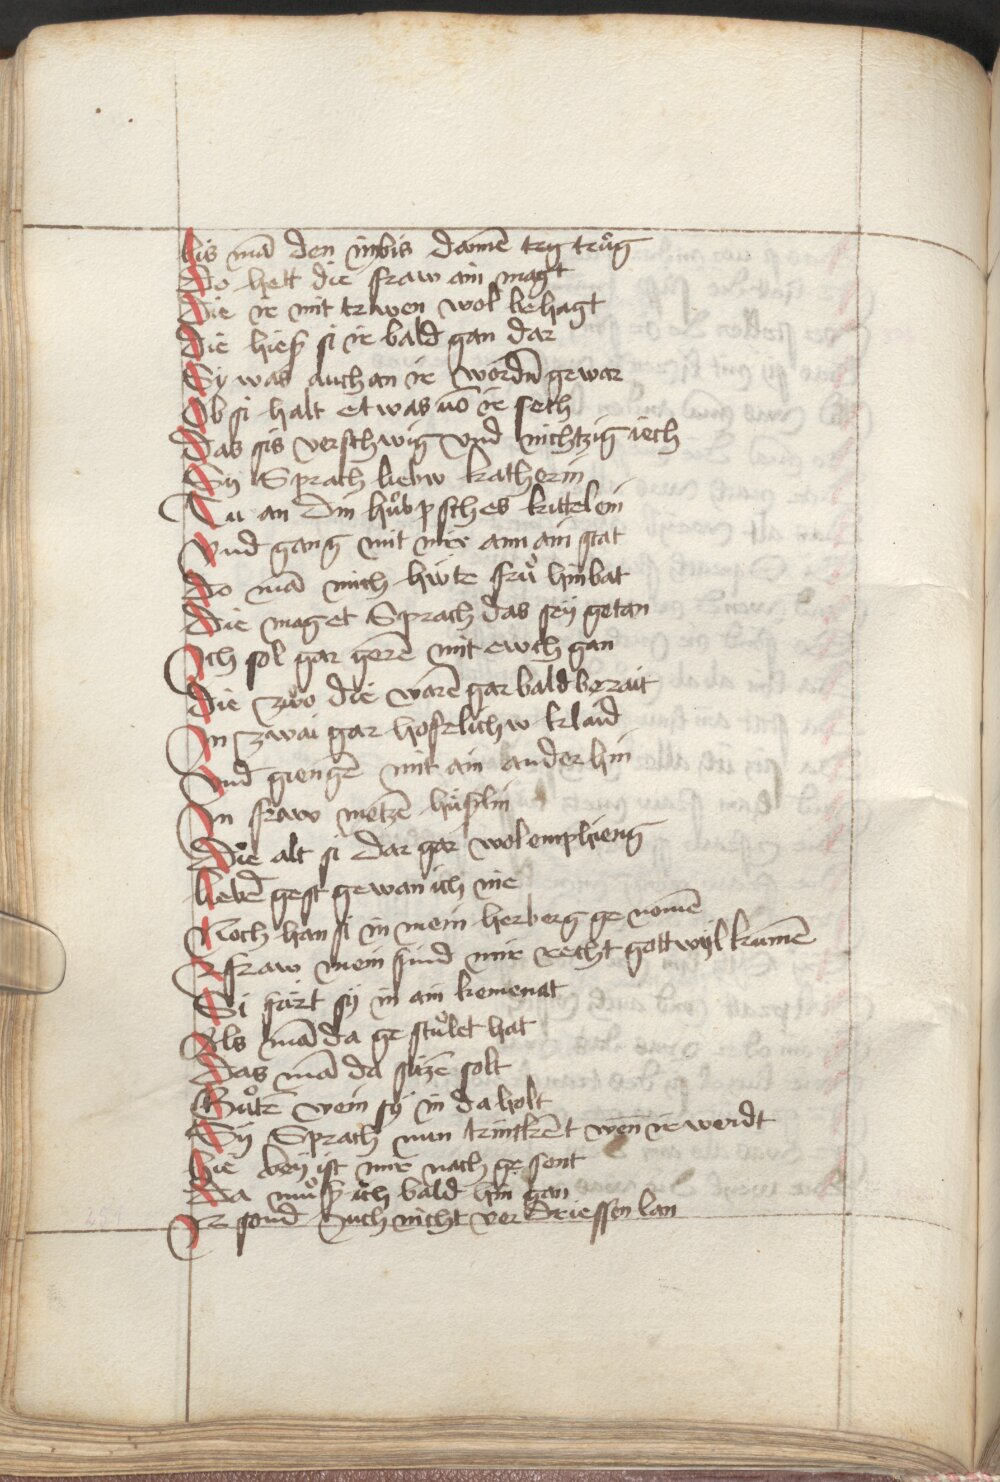 bis mā den imbis dannē trg trůg
Do hett die fraw ain magt
Die ir mit trwen wol behagt
Die hieſʒ ſi ir bald gan dar
Sy was auch an ir wordn̄ gewar
Ob ſi halt etwas vō ir ſech
Das ſis verſchwig vnd nichtzig iech
Sÿ Sprach liebw katherin
Tu an Din hůbpſches kittelein
vnd gang mit mir ann ain ſtat
Do mā mich hẘte frů hinbat
Die maget Sprach das ſeÿ getan
Ich ſol gar gerē mit ewch gan
Die zẘo die warē gar bald berait
In zwai gar hofrlichw klaid
vnd giengē mit ain ander hin
In fraw metzē hůſlin
Die alt ſi dar gar wol emphieng
liebē geſt gewan ich nie
Noch han ſi in mein herberg ge nomē
Ir fraw mein ſind mir recht gott wÿl kumē
Si fürt ſÿ in ain kemenat
Als mā da ge ſtůlet hat
Das mā da ſitzē ſolt
Gůtē wein ſÿ in da holt
Sÿ Sprach nun trinckēt wen ir werdt
hie beÿ iſt mir nach ge ſent
Da můſʒ ich bald hin gan
Ir ſond Euch nicht ver Drieſſen lan
251